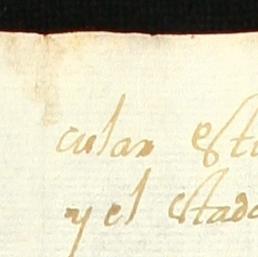 cular Est
y el Estado